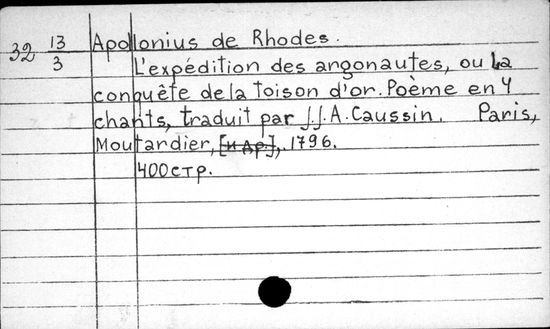 32 13/3 Apollonius de Rhodes.
L'expédition des argonautes, ou La
conquête de la toison d'or. Poème en 4
chants, traduit par J.J.A. Caussin. Paris,
Moutardier, [и др.], 1796.
400 стр.